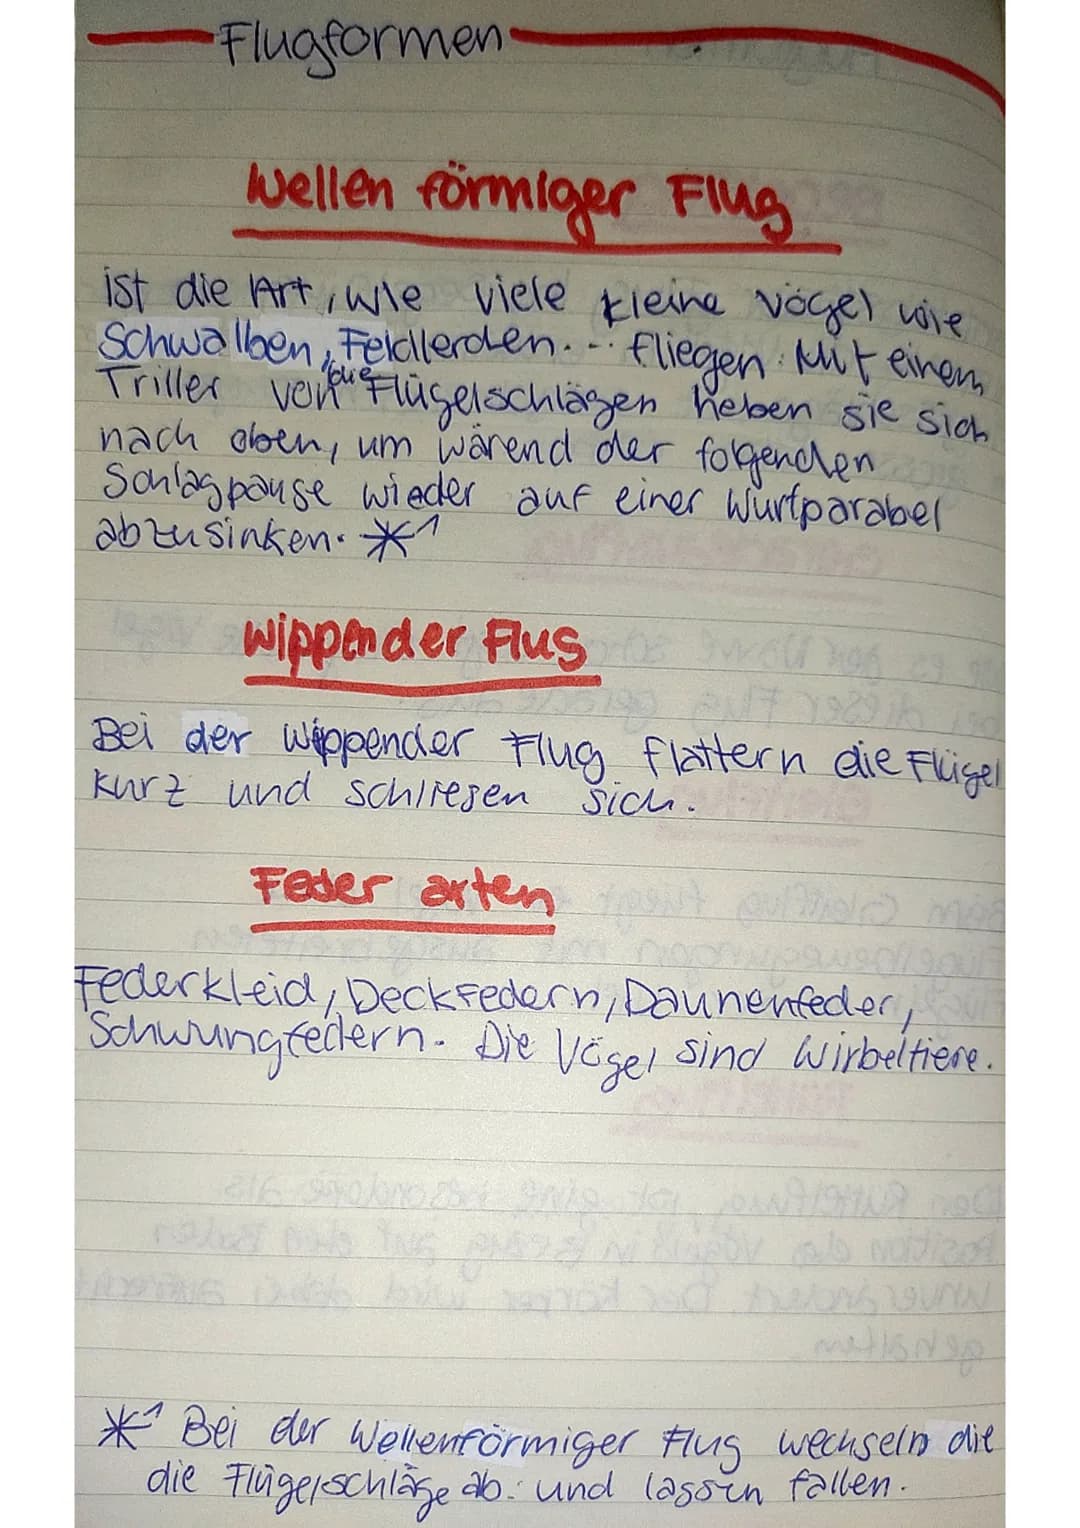 Flugformen
Wellen förmiger Flug
ist die Art, wie viele kleine Vögel wie
Schwalben, Feldlerchen... fliegen. Mit einem
Triller von die Flügelschlägen heben sie sich
nach oben, um wärend der folgenden
Schlagpause wieder auf einer Wurfparabel
abzusinken. *1
wippender Flug
Bei der wippender Flug flattern die Flügel
kurz und schliesen sich.
Feder arten
Federkleid, Deckfedern, Daunenfeder,
Schwungfedern. Die Vögel sind Wirbeltiere.
*1 Bei der Wellenförmiger Flug wechseln die
die Flügelschläge ab. und lassen fallen.